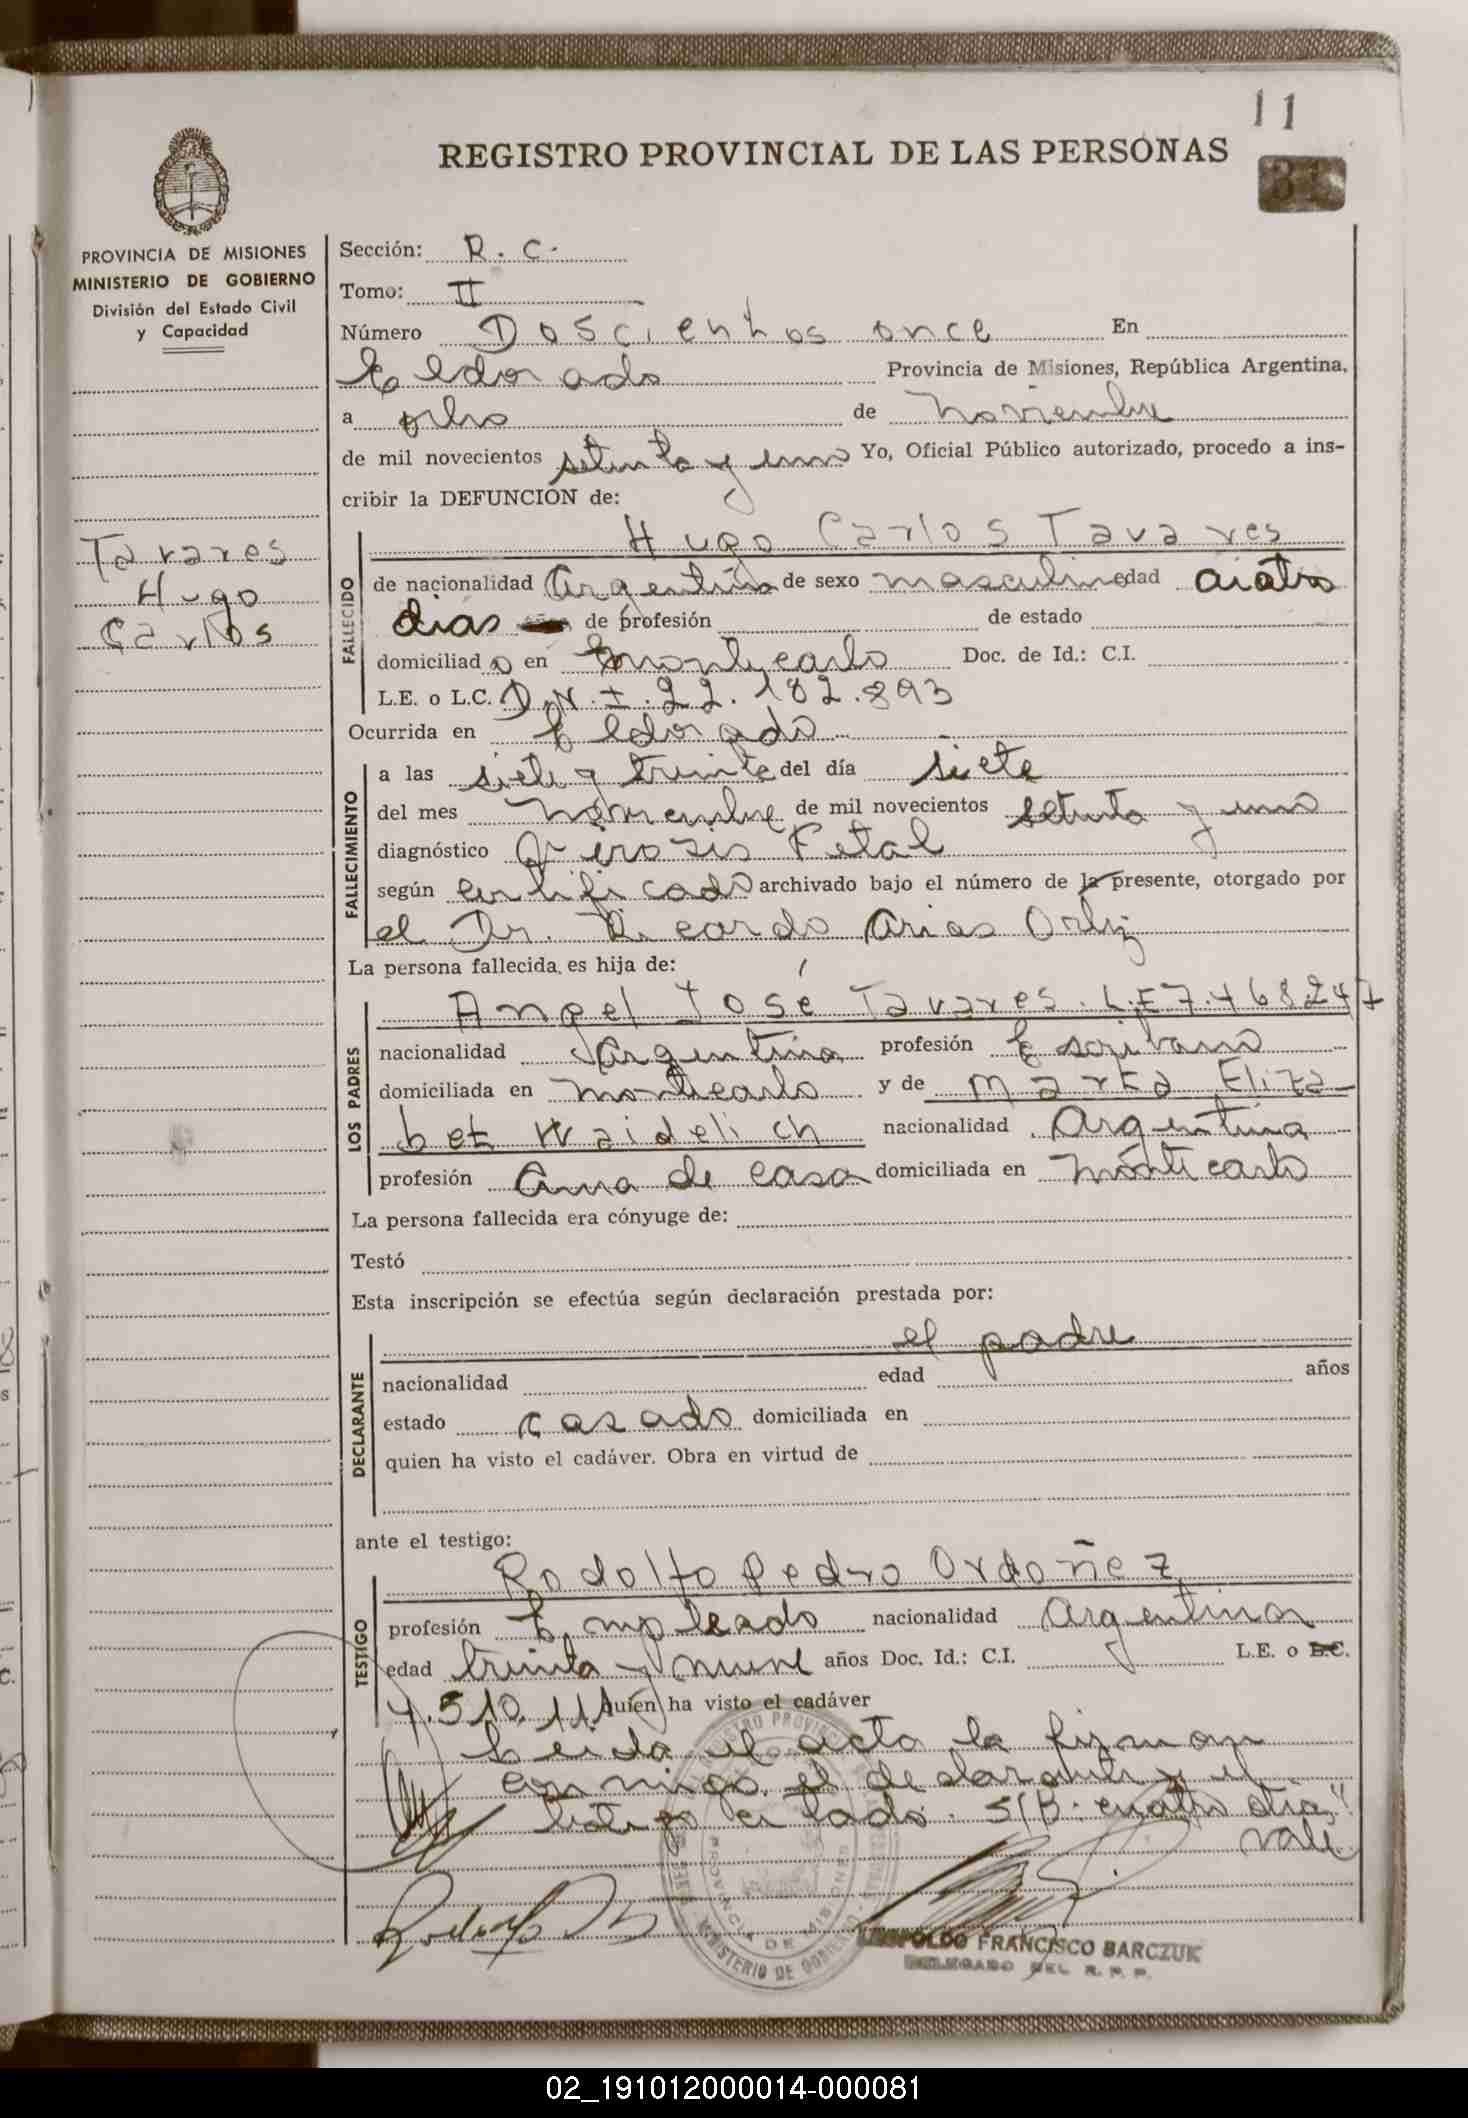 11
REGISTRO PROVINCIAL DE LAS PERSONAS
31
PROVINCIA DE MISIONES
MINISTERIO DE GOBIERNO
División del Estado Civil
y Capacidad
Tavares
Hugo
Carlos
Sección: R. C.
Tomo: II
Número Doscientos once En
Eldorado Provincia de Misiones, República Argentina,
a ocho de noviembre
de mil novecientos setenta y uno Yo, Oficial Público autorizado, procedo a ins-
cribir la DEFUNCION de:
Hugo Carlos Tavares
FALLECIDO
de nacionalidad Argentina de sexo masculino edad cuatro
dias de profesión de estado
domiciliado en Montecarlo Doc. de Id.: C.I.
L.E. o L.C. D.N.I. 22.182.893
Ocurrida en Eldorado
FALLECIMIENTO
a las siete y treinta del día siete
del mes noviembre de mil novecientos setenta y uno
diagnóstico Fetal
según certificado archivado bajo el número de la presente, otorgado por
el Dr. Ricardo Arias Ortiz
La persona fallecida, es hija de:
LOS PADRES
Angel José Tavares. L.E 7.468247
nacionalidad Argentina profesión Escribano
domiciliada en Montecarlo y de Marta Eliza
bet Waidelich nacionalidad Argentina
profesión Ama de casa domiciliada en Montecarlo
La persona fallecida era cónyuge de:
Testó
Esta inscripción se efectúa según declaración prestada por:
DECLARANTE
el padre
nacionalidad edad años
estado casado domiciliada en
quien ha visto el cadáver. Obra en virtud de
ante el testigo:
TESTIGO
Rodolfo Pedro Ordoñez
profesión Empleado nacionalidad Argentina
edad treinta y nueve años Doc. Id.: C.I. L.E. o L.C.
quien ha visto el cadáver
Leida el acta la firman
conmigo el declarante y el
testigo citado. S/B: cuatro dias"
vale
MINISTERIO DE GOBIERNO
PROVINCIA DE MISIONES
LEOPOLDO FRANCISCO BARCZUK
DELEGADO DEL R. P. P.
02_191012000014-000081